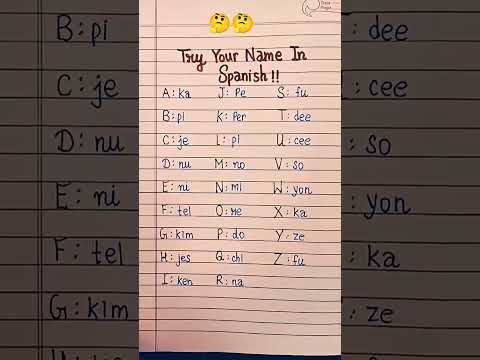 Try Your Name In
Spanish!!
A:ka J:Pe S:fu
B:pi K:Per T:dee
C:je L:pi U:cee
D:nu M:no V:so
E:ni N:mi W:yon
F:tel O:me X:ka
G:kim P:do Y:ze
H:jes Q:chi Z:fu
I:ken R:na
B:pi
C:je
D:nu
E:ni
F:tel
G:kim
:dee
:cee
:so
:yon
:ka
:ze